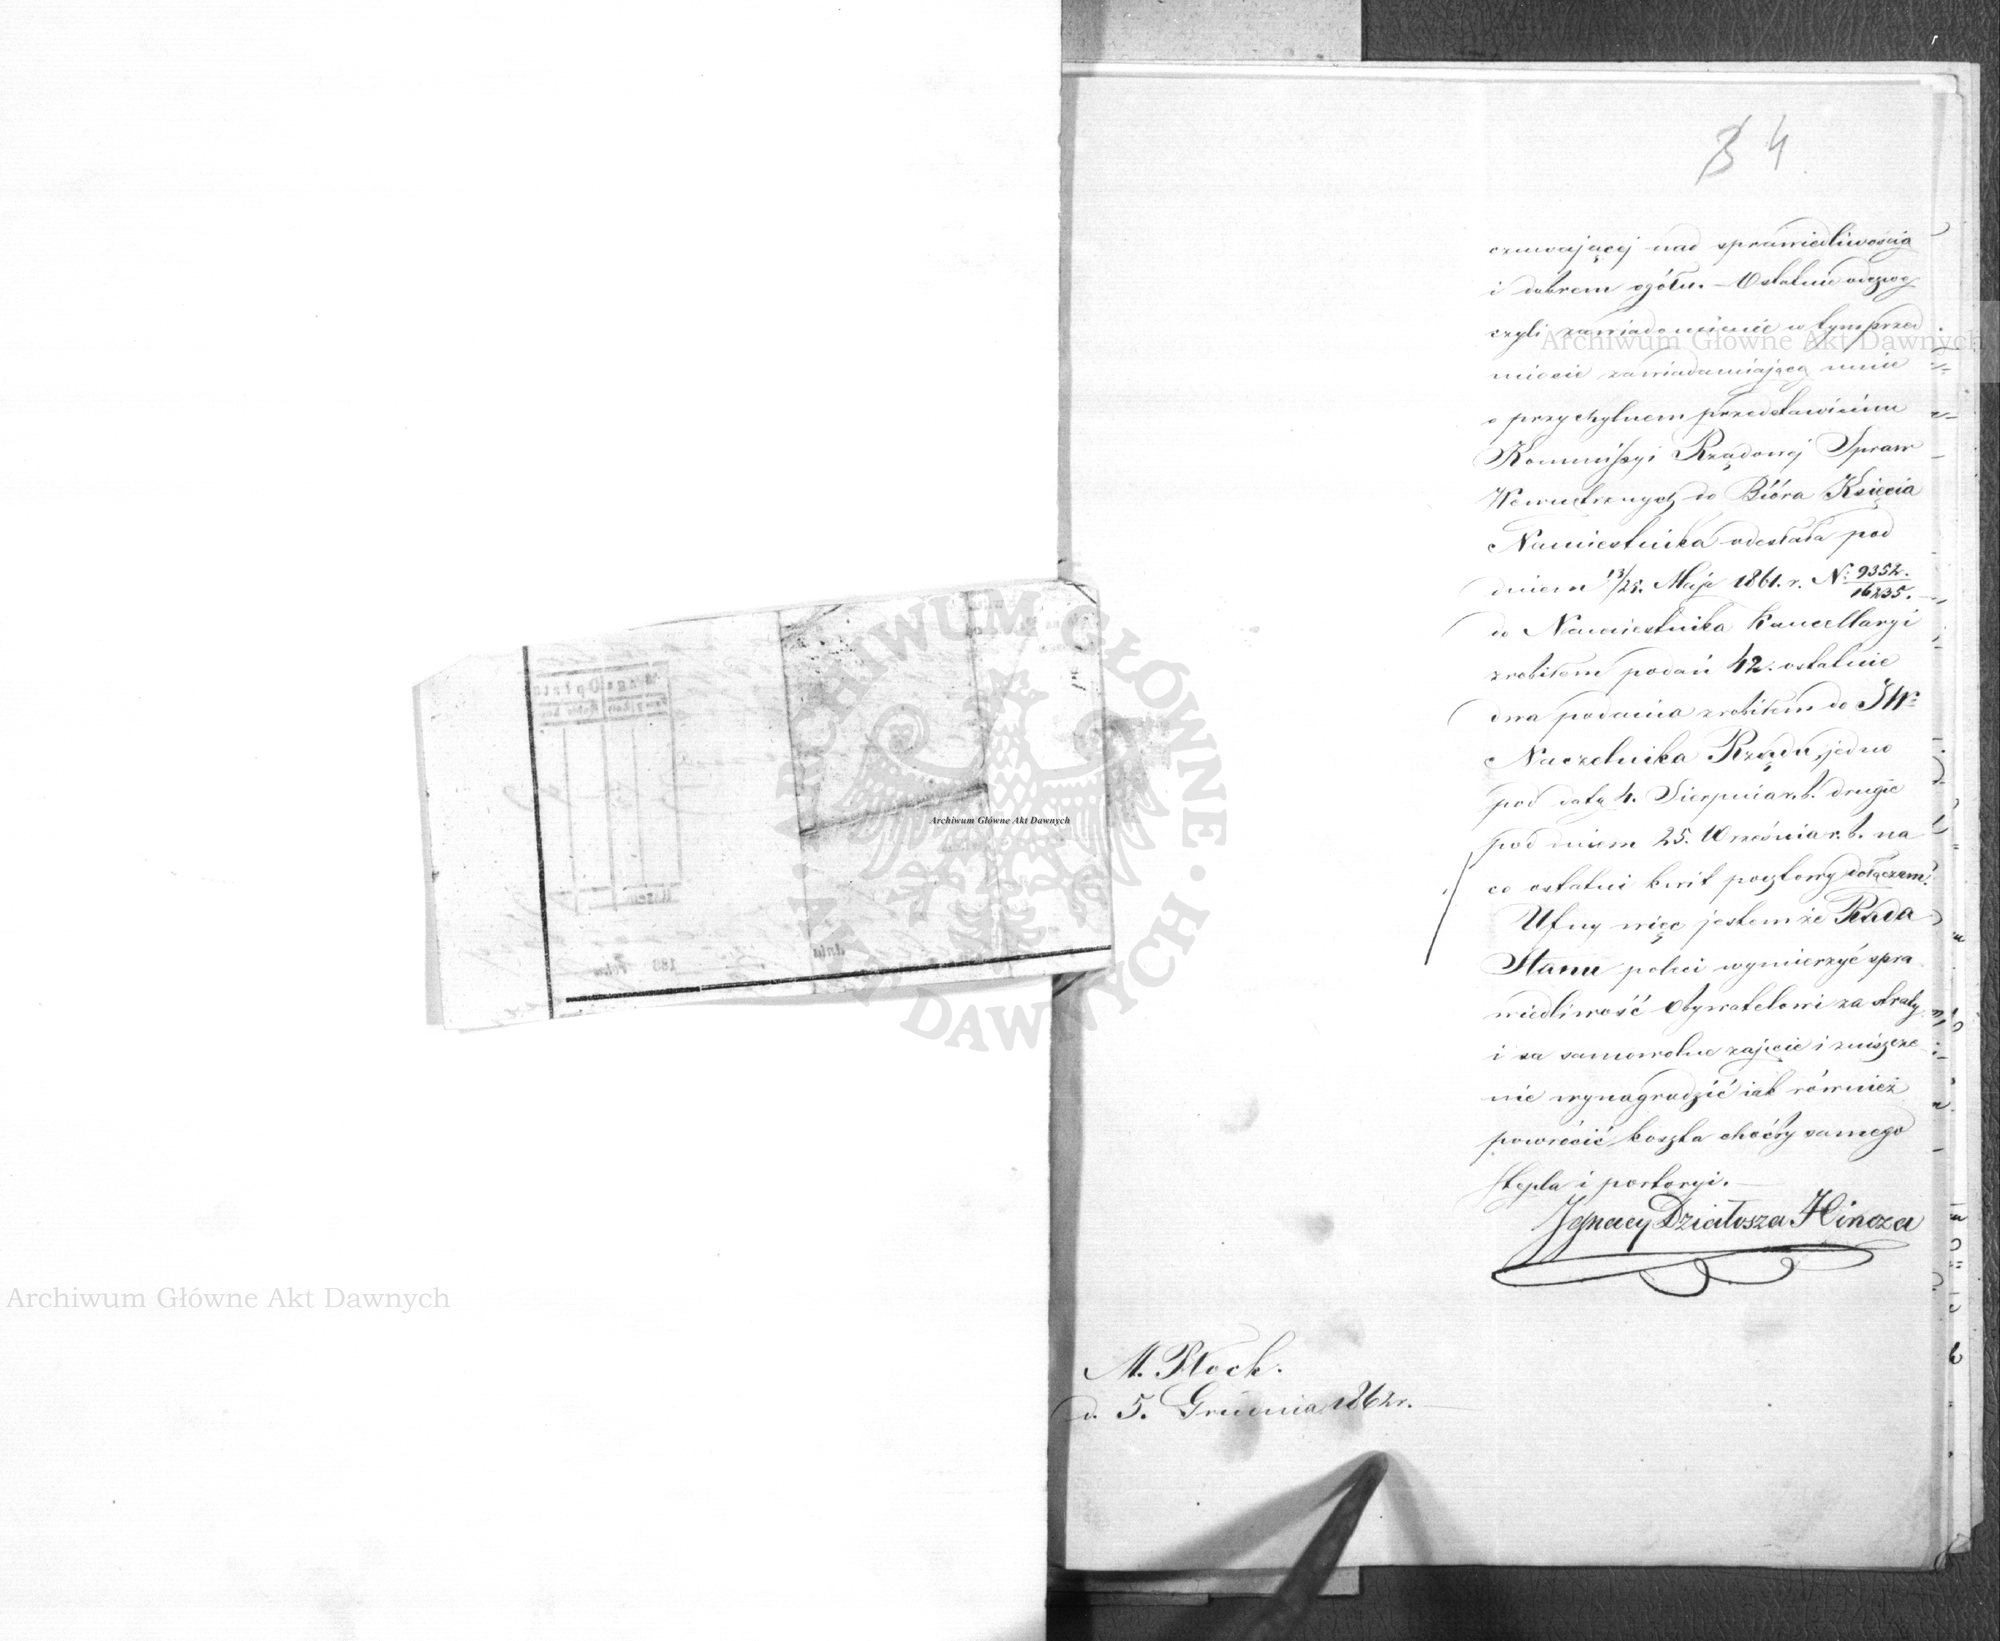 3 4
czuwającej nad sprawiedliwością
i dobrem ogółu. — Ostatnie odezwę
czyli zawiadomienie w tym przed
miocie zawiadamiającą mnie
o przychylnem przedstawieniu
Kommissyi Rządowej Spraw
Wewnętrznych do Bióra Księcia
Namiestnika odesłała pod
dniem 13/25. Maja 1861. r. N: 9352./16235.
do Namiestnika Kancellaryi
zrobiłem podań 42. ostatnie
dwa podania zrobiłem do JW:
Naczelnika Rządu, jedno
pod datą 4. Sierpnia r. b. drugie
pod dniem 25. Września r. b. na
co ostatni kwit pocztowy dołączam.
Ufny więc jestem że Rada
Stanu poleci wymierzyć spra
wiedliwość Obywatelowi za straty
i za samowolne zajęcie i zniszcze
nie wynagrodzić iak również
powrócić koszta choćby samego
stępla i portoryi. —
Ignacy Działosza Hincza
M. Płock.
d. 5. Grudnia 1862 r.
Opłata
dnia
186 Roku
Razem
Archiwum Główne Akt Dawnych
Archiwum Główne Akt Dawnych
Archiwum Główne Akt Dawnych
ARCHIWUM GŁÓWNE AKT DAWNYCH